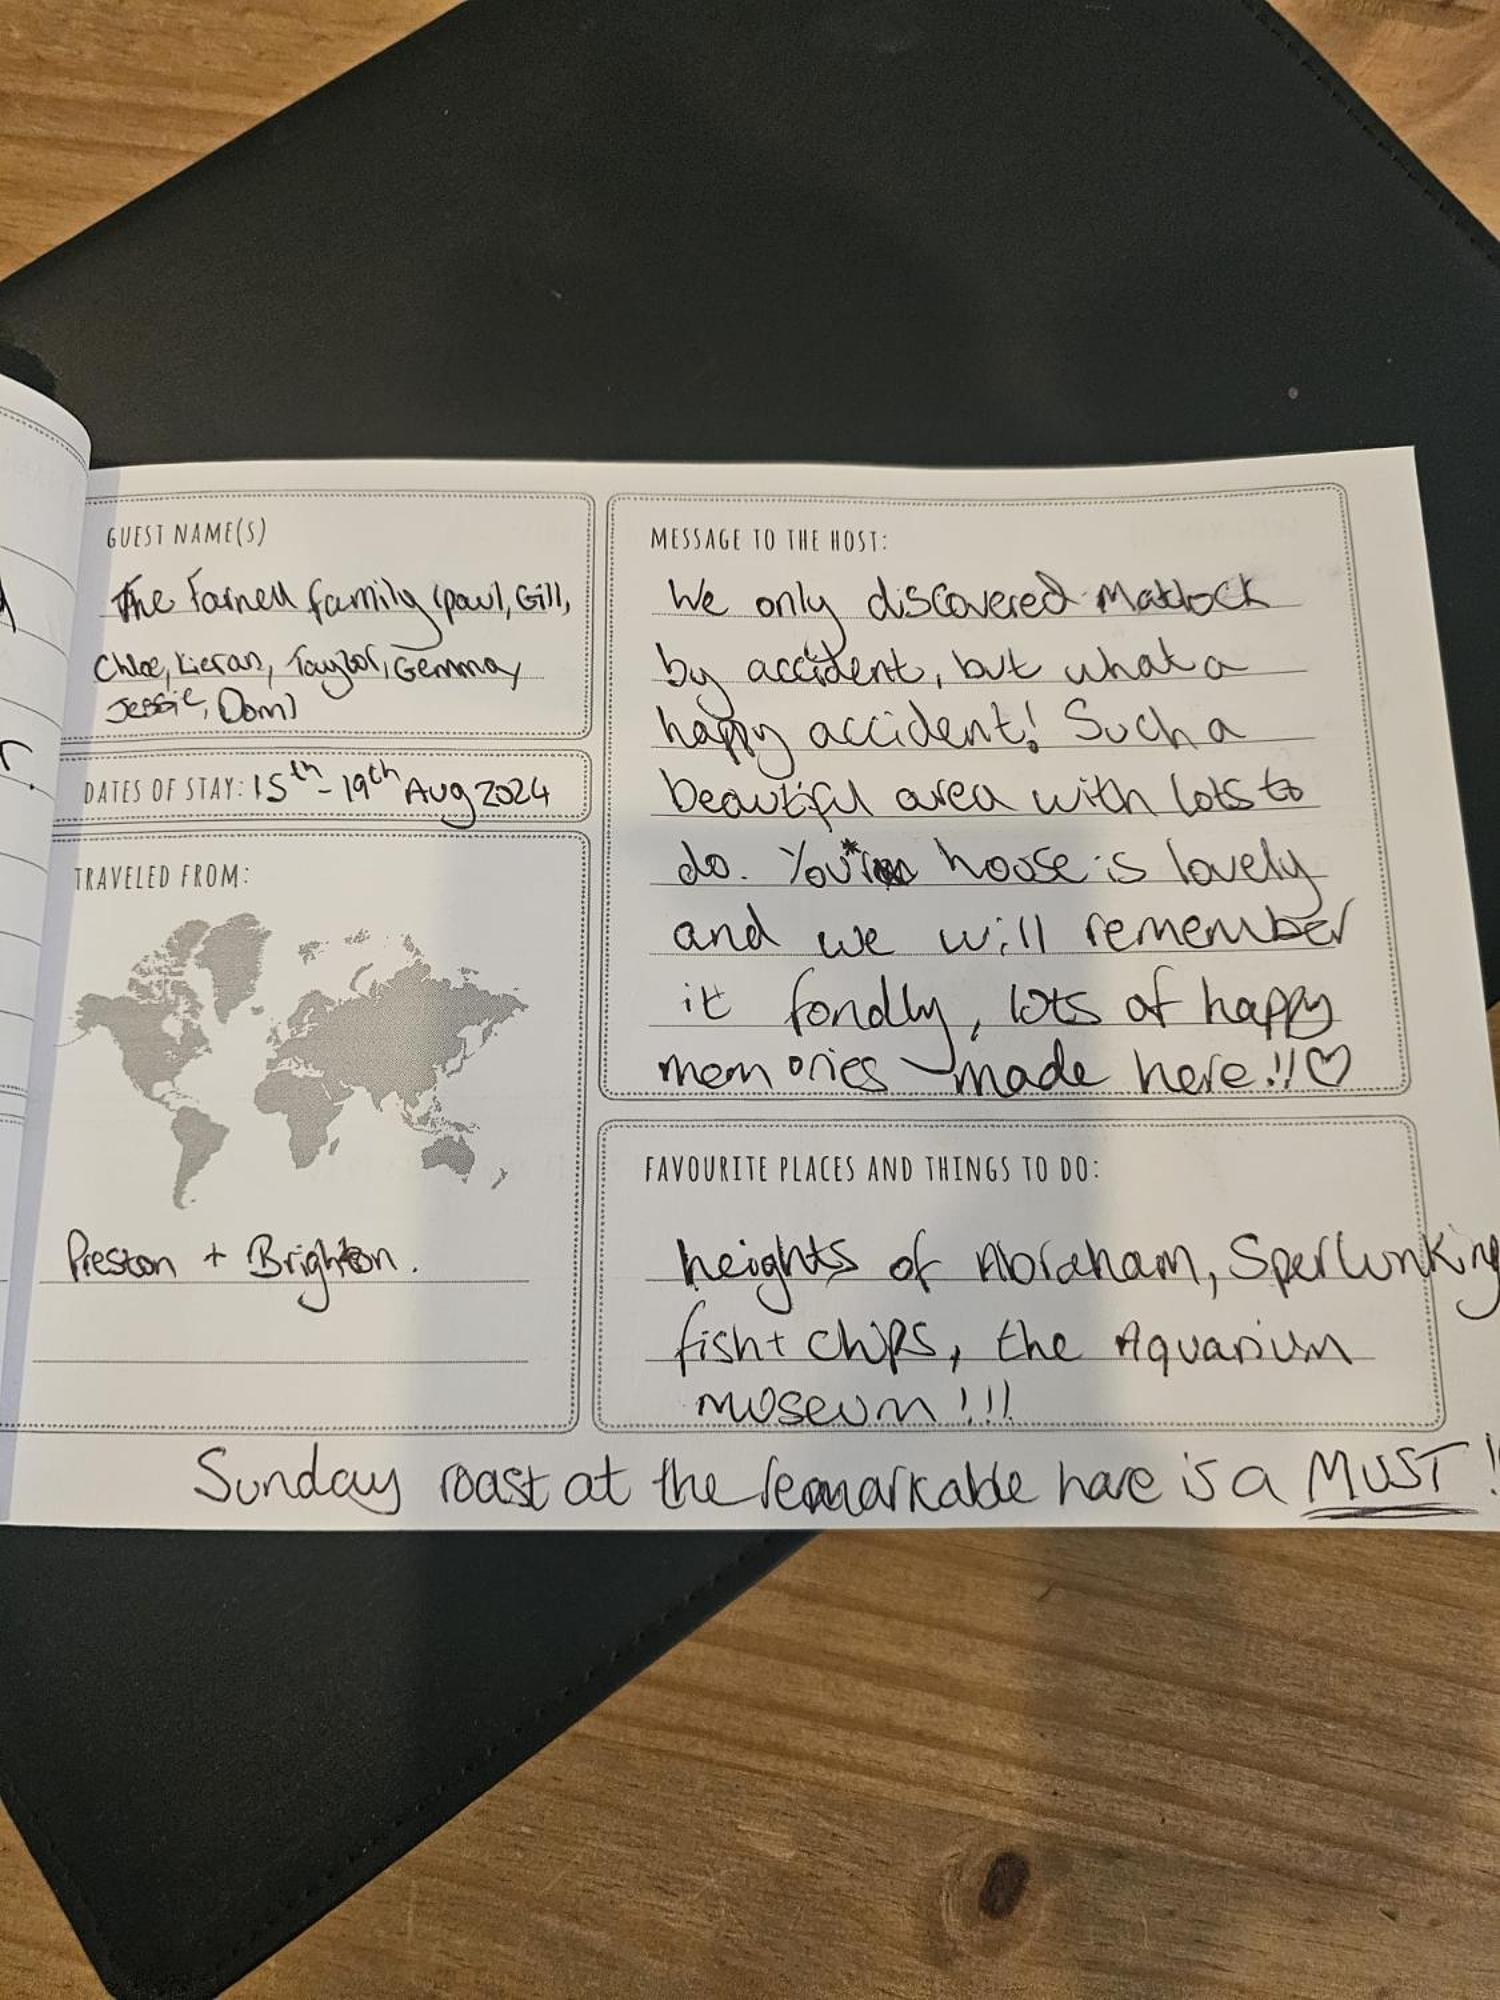 GUEST NAME(S)
The Farnell family (paul, Gill,
Chloe, Kieran, Taylor, Gemma,
Jessie, Dom)
DATES OF STAY: 15th - 19th Aug 2024
TRAVELED FROM:
Preston + Brighton.
MESSAGE TO THE HOST:
We only discovered Matlock
by accident, but what a
happy accident! Such a
beautiful area with lots to
do. Your house is lovely
and we will remember
it fondly, lots of happy
memories made here!!♡
FAVOURITE PLACES AND THINGS TO DO:
heights of Abraham, Sperlunking
fish + chips, the Aquarium
museum!!!
Sunday roast at the remarkable hare is a MUST!